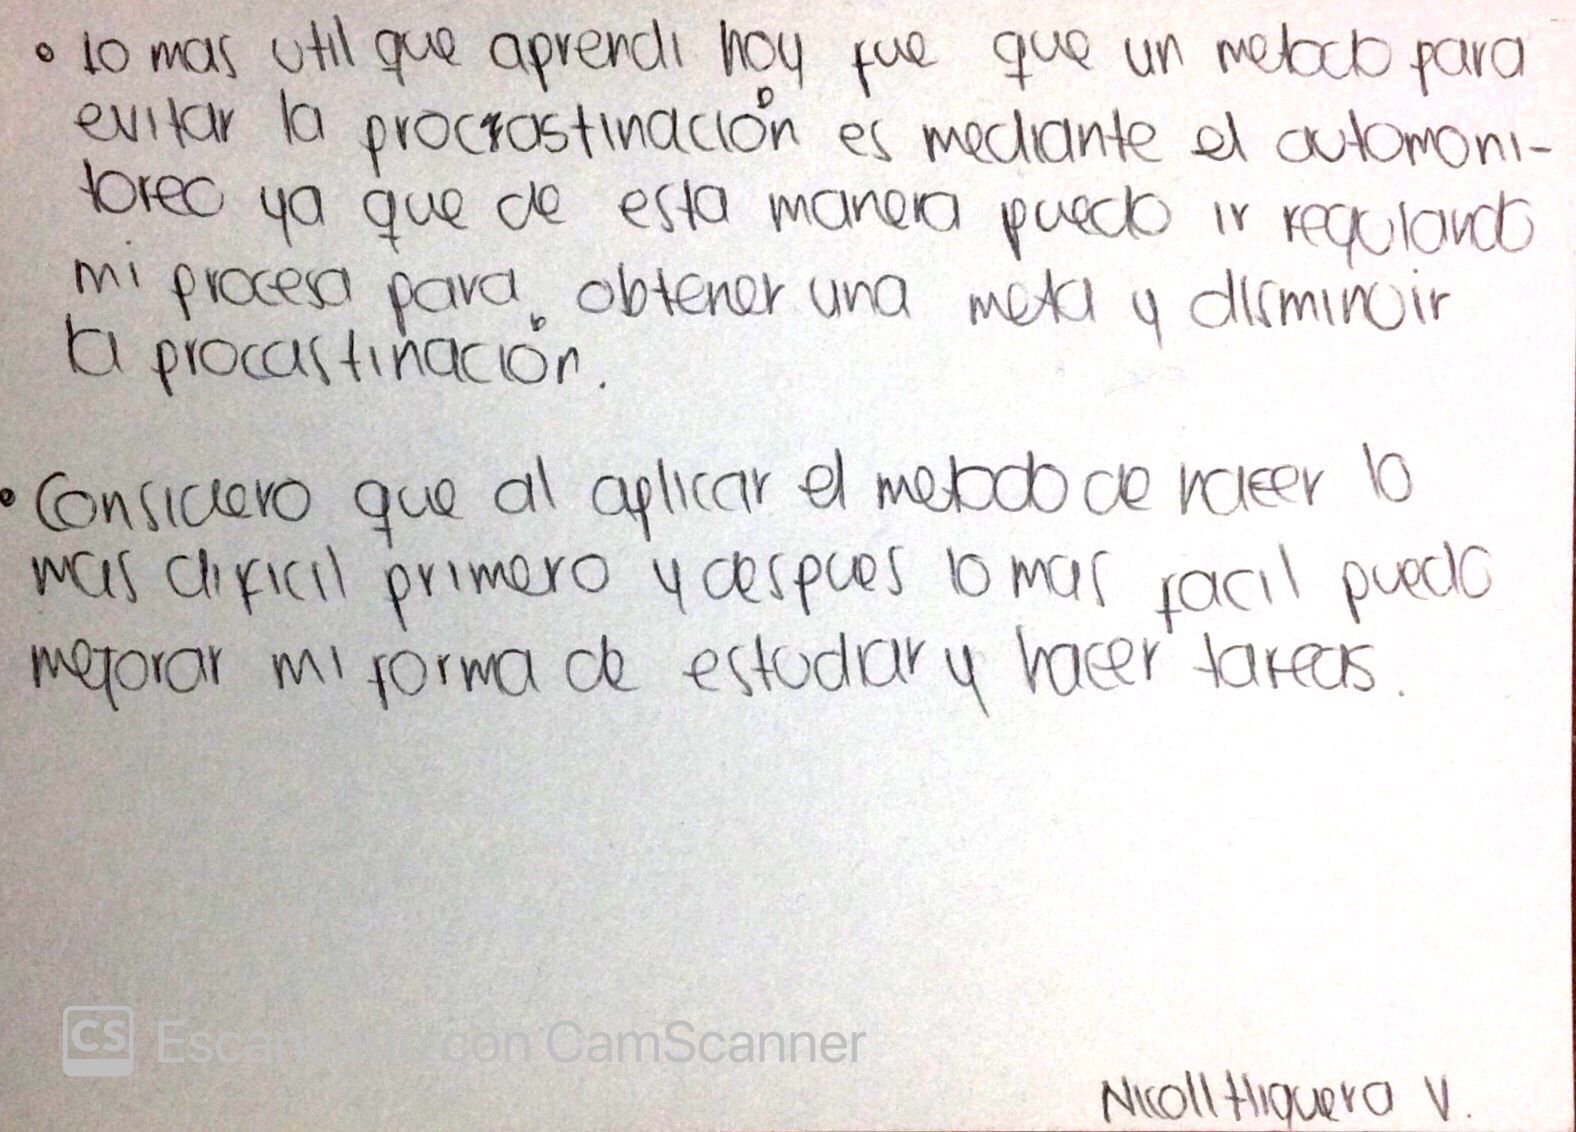 • lo mas util que aprendi hoy fue que un metodo para
evitar la procrastinación es mediante el automoni-
toreo ya que de esta manera puedo ir regulando
mi proceso para obtener una meta y disminuir
la procastinación.
• Considero que al aplicar el metodo de hacer lo
mas dificil primero y despues lo mas facil puedo
mejorar mi forma de estudiar y hacer tareas.
CS Escaneado con CamScanner
Nicoll Higuera V.